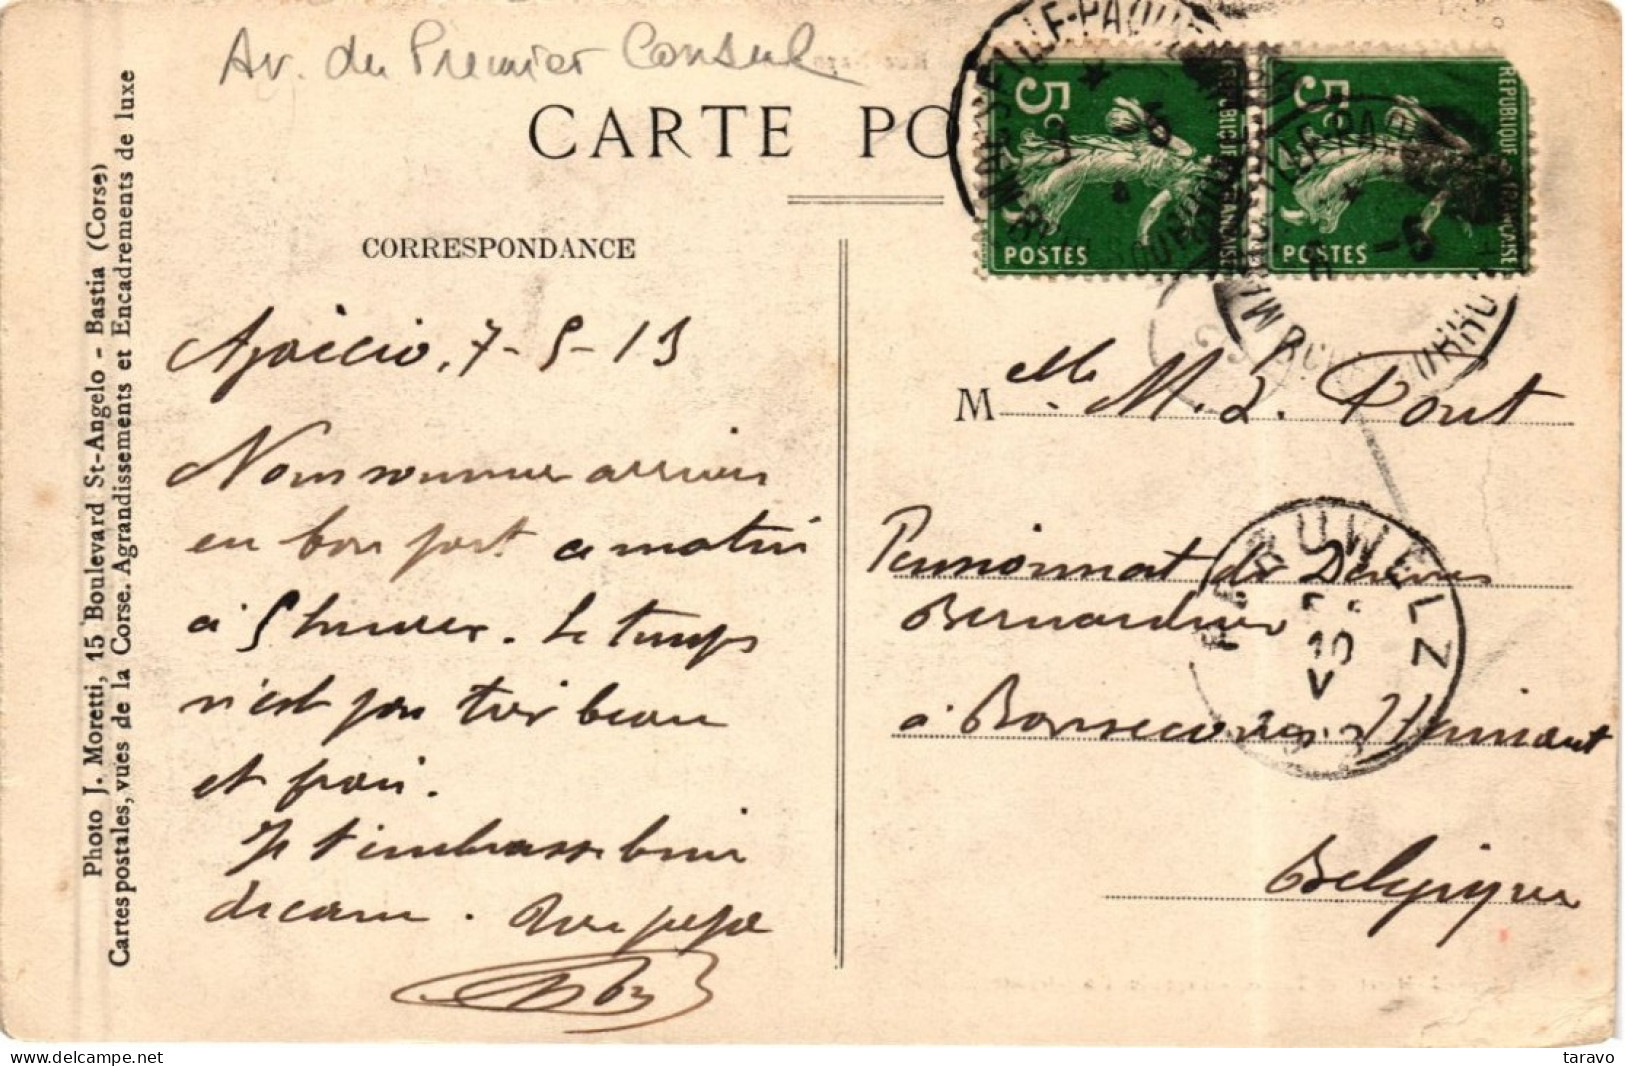 Av. du Premier Consul
CARTE PO
CORRESPONDANCE
Photo J. Moretti, 15 Boulevard St-Angelo - Bastia (Corse)
Cartes postales, vues de la Corse. Agrandissements et Encadrements de luxe
Ajaccio, 7-5-13
Nous sommes arrivés
en bon port ce matin
à 5 heures. Le temps
n'est pas très beau
et frais.
Je t'embrasse bien
de cœur. Ton pépé
5c
POSTES
REPUBLIQUE FRANÇAISE
5c
POSTES
REPUBLIQUE FRANÇAISE
MARSEILLE-PAQUEBOTS
Melle M. L. Pont
Pensionnat des Dames
Bernardines
à Bonsecours. Hainaut
Belgique
PERUWELZ
10
V
taravo